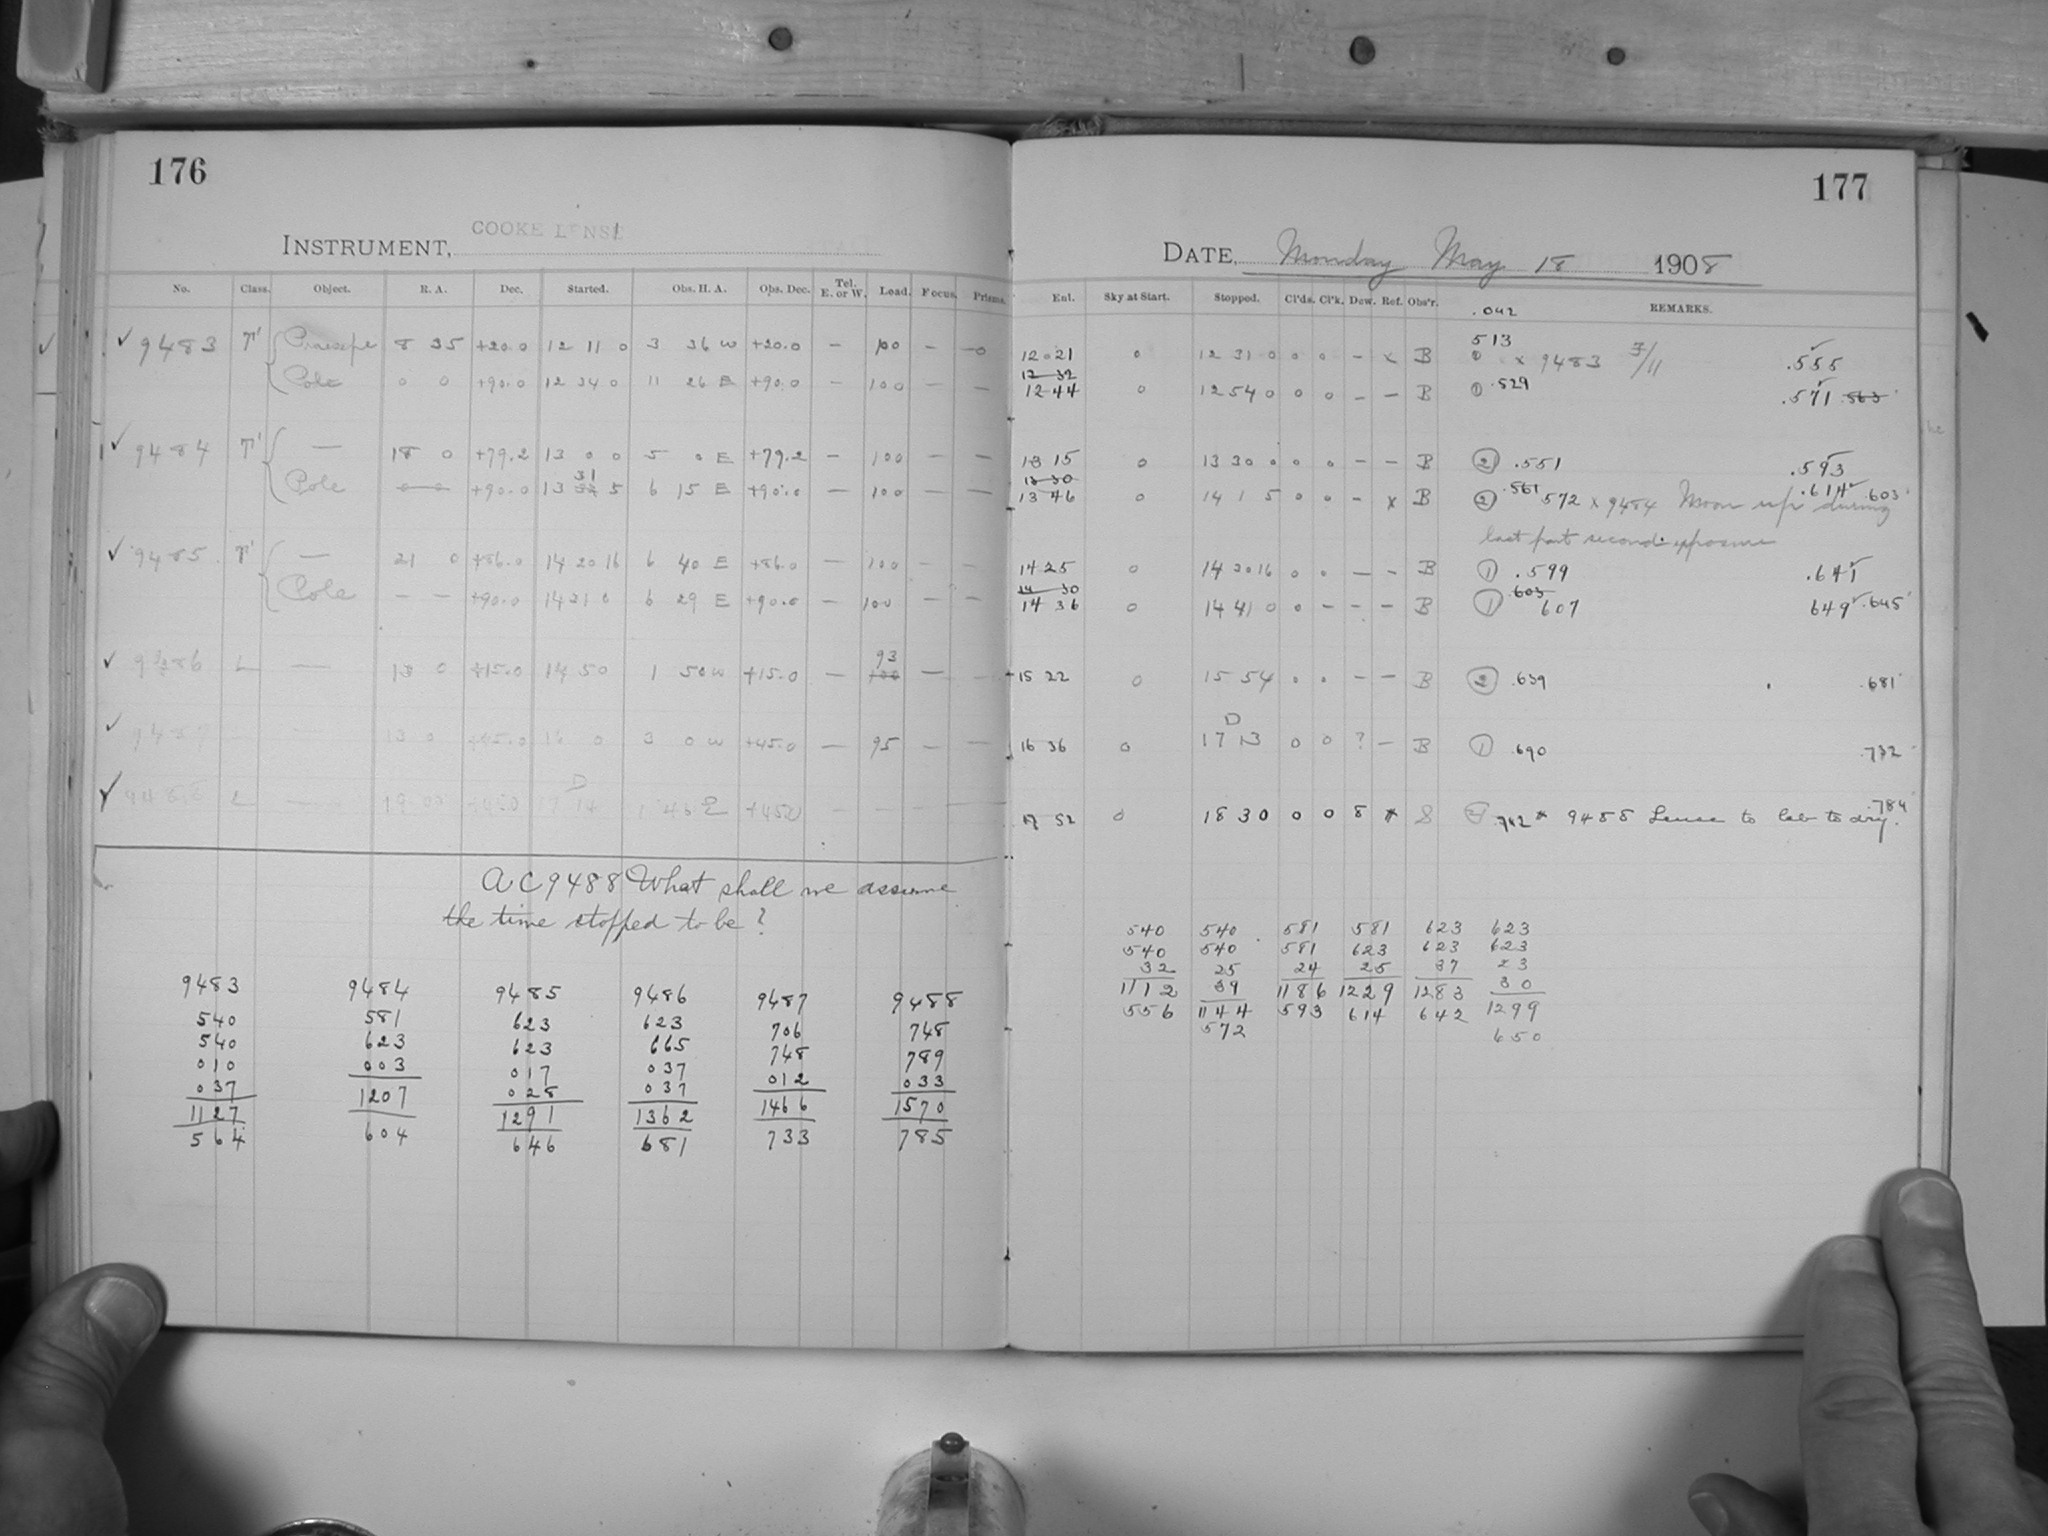 176
INSTRUMENT, COOKE LENS
No. Class. Object. R. A. Dec. Started. Obs. H. A. Obs. Dec. Tel. E. or W. Load. Focus. Prisms.
✓ 9483 T' Praesepe 8 35 +20.0 12 11 0 3 36 W +20.0 – 100 – –0
Pole 0 0 +90.0 12 34 0 11 26 E +90.0 – 100 – –
✓ 9484 T' — 18 0 +79.2 13 0 0 5 0 E +79.2 – 100 – –
31
Pole +90.0 13 5 6 15 E +90.0 – 100 – –
✓ 9485 T' — 21 0 +86.0 14 20 16 6 40 E +86.0 – 100 – –
Pole – – +90.0 14 31 0 6 29 E +90.0 – 100 – –
93
✓ 9486 L — 13 0 +15.0 14 50 1 50 W +15.0 – 100 – –
✓ 9487 – — 13 0 +45.0 16 0 3 0 W +45.0 – 95 – –
✓ 9488 L — 19 00 +45.0 17 14 1 46 E +45.0 – – – –
AC 9488 What shall we assume
the time stopped to be?
9483 9484 9485 9486 9487 9488
540 581 623 623 706 748
540 623 623 665 748 789
010 003 017 037 012 033
037 1207 028 037 1466 1570
1127 604 1291 1362 733 785
564 646 681
177
DATE, Monday May 18 1908
Enl. Sky at Start. Stopped. Cl'ds. Cl'k. Dew. Ref. Obs'r. REMARKS.
.042
513
12 021 0 12 31 0 0 0 – x B ① x 9483 3/11 .555
12 32
12 44 0 12 54 0 0 0 – – B ① .529 .571 .563
13 15 0 13 30 0 0 0 – – B ② .551 .593
13 30
13 46 0 14 1 5 0 0 – x B ② .561 572 x 9484 Moon up during .614 .603
last part second exposure
14 25 0 14 30 16 0 0 – – B ① .599 .641
14 30
14 36 0 14 41 0 0 – – – B ① .603 607 649 .645
15 22 0 15 54 0 0 – – B ② .639 .681
D
16 36 0 17 13 0 0 ? – B ① .690 .732
17 52 0 18 30 0 0 8 * S ② .742 * 9488 Lense to lab to dry. .784
540 540 581 581 623 623
540 540 581 623 623 623
32 25 24 25 37 23
1112 39 1186 1229 1283 30
556 1144 593 614 642 1299
572 650